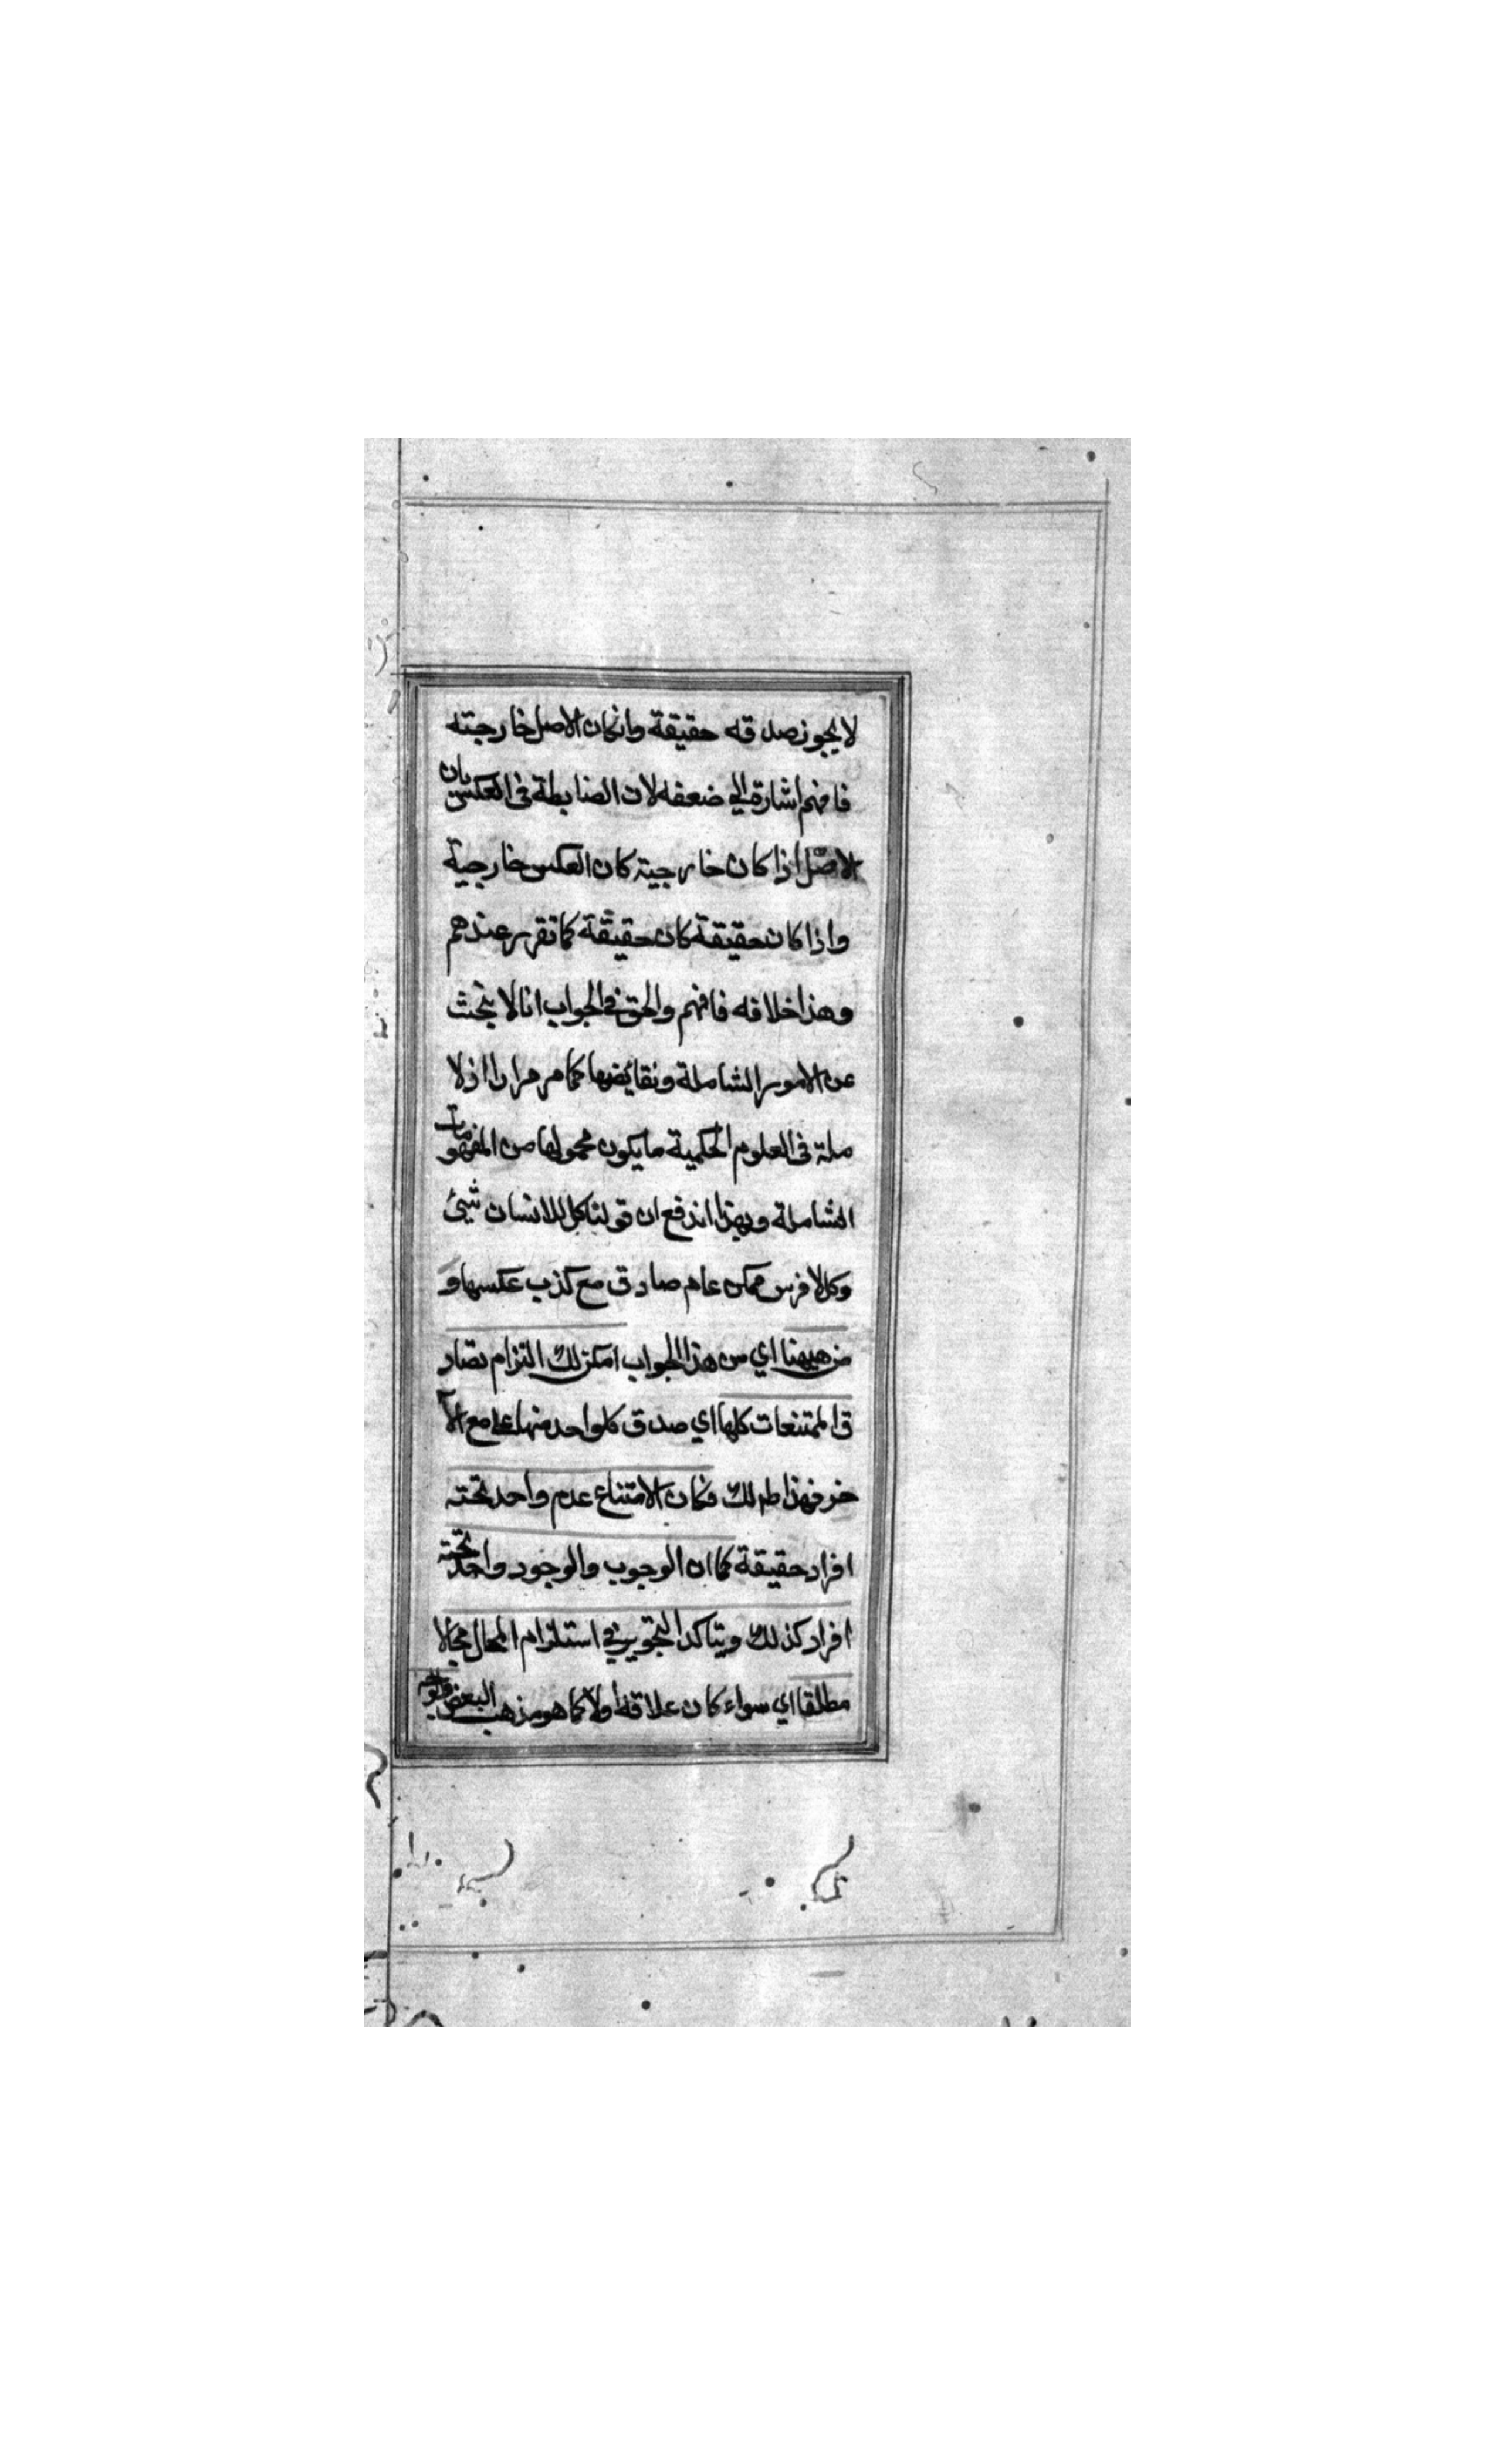 لا يجوز صدقه حقيقة وانكان الاصل خارجته
فافهم اشارة الي ضعفه لان الضابطة في العكس بان
الاصل اذا كان خارجية كان العكس خارجية
واذا كان حقيقة كان حقيقة كما تقرر عندهم
وهذا خلافه فافهم والحق في الجواب انا لا نبحث
عن الامور الشاملة ونقائضها كما مر مرارا اذ لا
ملة في العلوم الحكمية ما يكون محمولها من المفهومات
الشاملة وبهذا اندفع ان قولنا كل للانسان شيئ
وكل لا فرس ممكن عام صادق مع كذب عكسها و
من هيهنا اي من هذا الجواب امكن لك التزام تصاد
ق الممتنعات كلها اي صدق كلواحد منها علي مع الآ
خر فهذا طم لك فكان الامتناع عدم واحد تحته
افراد حقيقة كما ان الوجوب والوجود واحد تحته
افراد كذلك ويتاكد التجويز في استلزام المحال محالا
مطلقا اي سواء كان علاقة اولا كما هو مذهب البعض